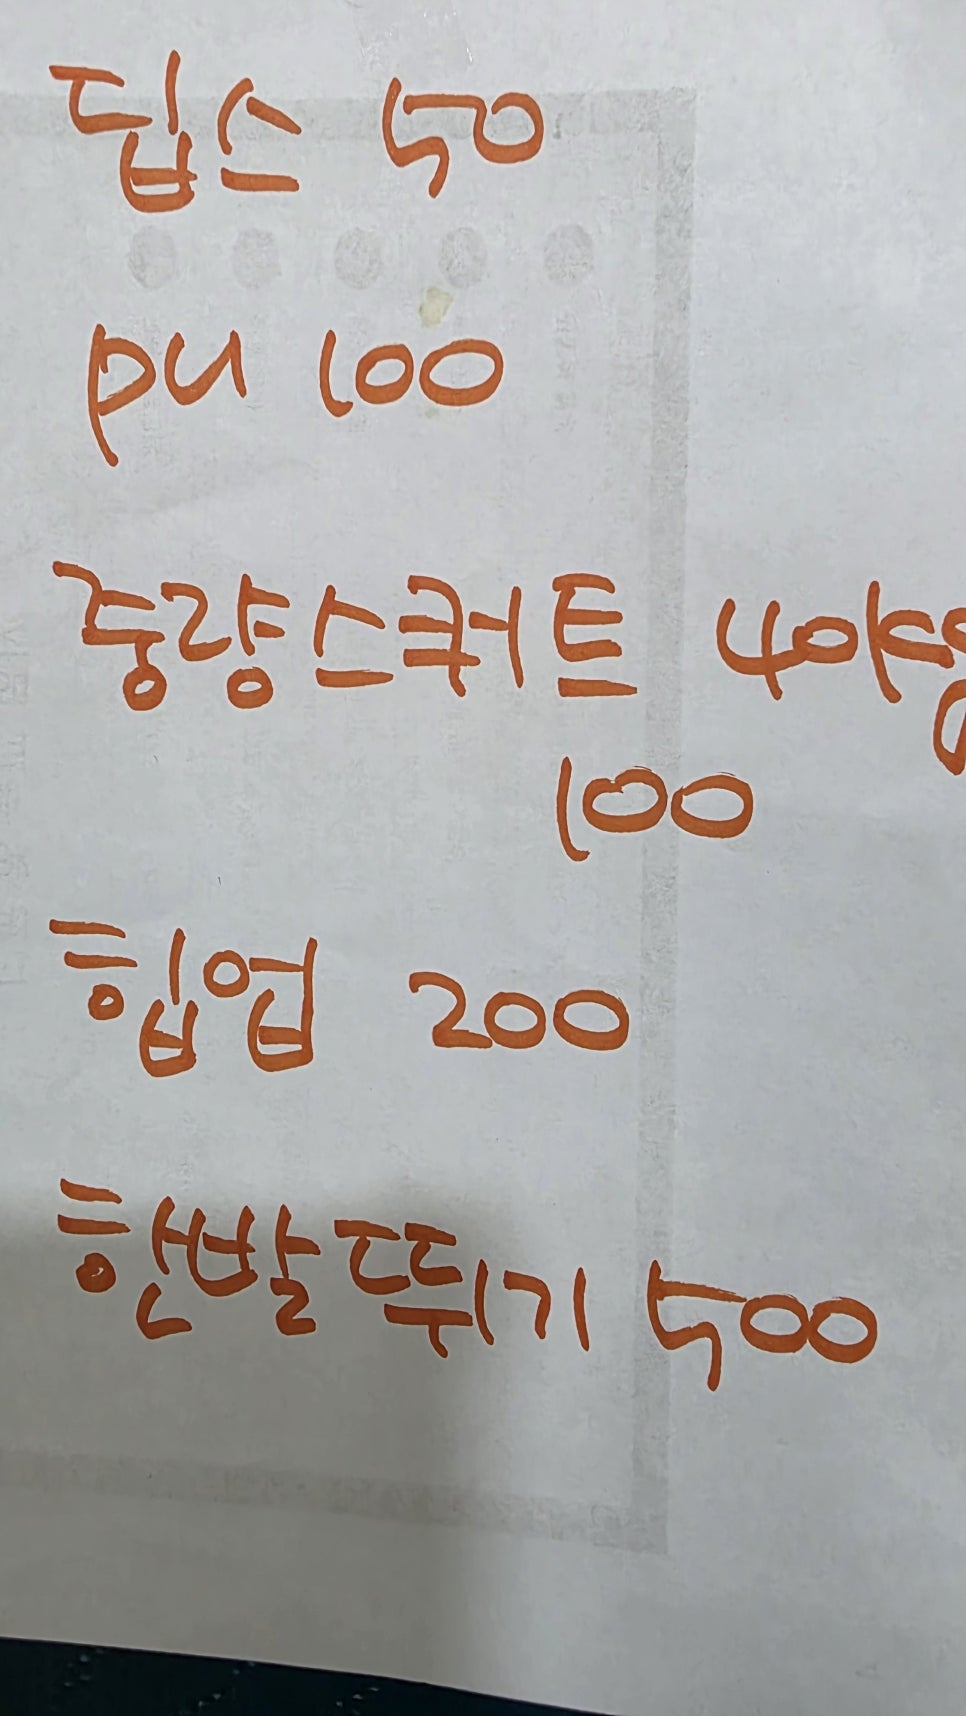 딥스 50
pu 100
중량스쿼트 40kg
100
힙업 200
한발뛰기 500